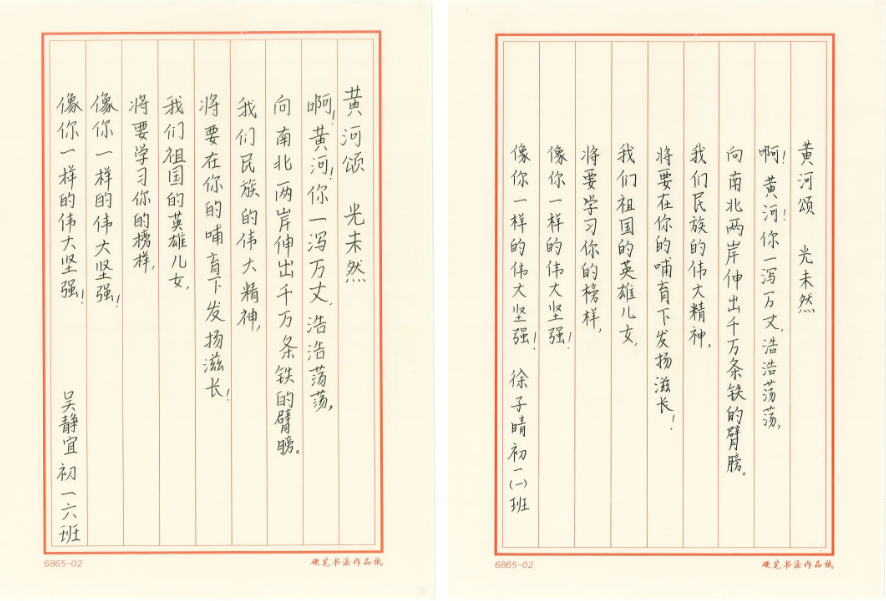 黄河颂 光未然
啊!黄河!你一泻万丈,浩浩荡荡,
向南北两岸伸出千万条铁的臂膀。
我们民族的伟大精神,
将要在你的哺育下发扬滋长!
我们祖国的英雄儿女,
将要学习你的榜样,
像你一样的伟大坚强!
像你一样的伟大坚强!
吴静宜 初一六班
6865-02
硬笔书法作品纸
黄河颂 光未然
啊!黄河!你一泻万丈,浩浩荡荡,
向南北两岸伸出千万条铁的臂膀。
我们民族的伟大精神,
将要在你的哺育下发扬滋长!
我们祖国的英雄儿女,
将要学习你的榜样,
像你一样的伟大坚强!
像你一样的伟大坚强! 徐子晴初一(一)班
6865-02
硬笔书法作品纸